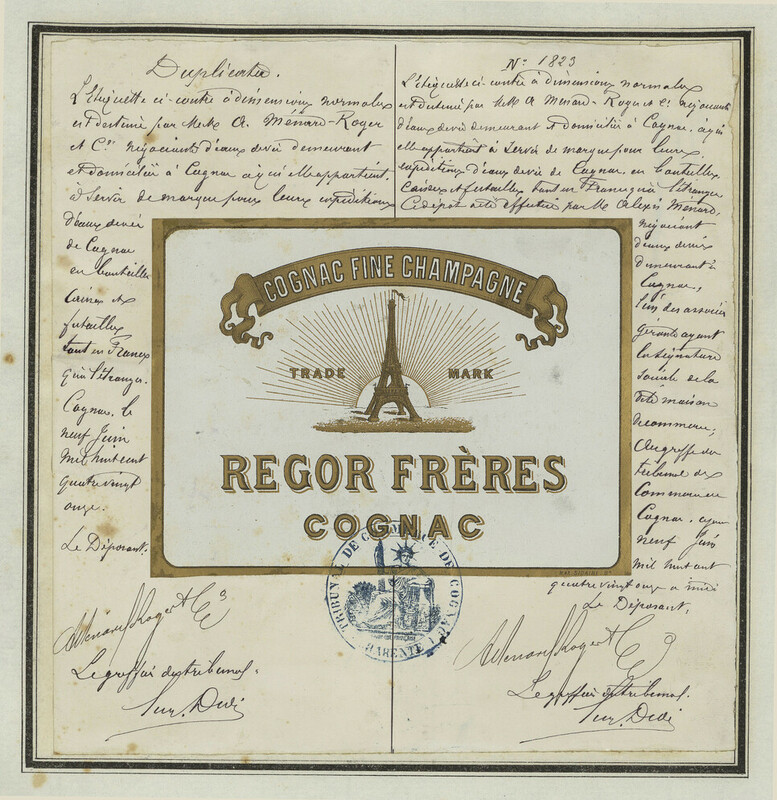 Duplicata.
L'Étiquette ci-contre à dimensions normales
est destinée par MM. A. Ménard-Roger
et Cie négociants d'eaux devie demeurant
et domiciliés à Cognac à qui elle appartient,
à Servir de marque pour leurs expéditions
d'eaux devie
de Cognac
en bouteilles
Caisses et
futailles
tant en France
qu'à l'étranger.
Cognac, le
neuf Juin
Mil huit cent
quatre vingt
onze.
Le Déposant.
Le greffier du tribunal.
No 1823
L'Étiquette ci-contre à dimensions normales
est destinée par MM. A. Ménard-Roger et Cie négociants
d'eaux devie demeurant et domiciliés à Cognac, à qui
elle appartient à Servir de marque pour leurs
expéditions d'eaux de vie de Cognac, en bouteilles,
Caisses et futailles tant en France qu'à l'étranger
Ce dépôt a été effectué par M. Alexis Ménard,
négociant
d'eaux devie
demeurant à
Cognac,
l'un des associés
gérants ayant
la signature
sociale de la
dite maison
de commerce;
Au greffe du
tribunal de
Commerce de
Cognac, ce jour
neuf Juin
mil huit cent
quatre vingt onze à midi
Le Déposant,
Le greffier du tribunal.
COGNAC FINE CHAMPAGNE
TRADE MARK
REGOR FRÈRES
COGNAC
TRIBUNAL DE COMMERCE DE COGNAC
CHARENTE